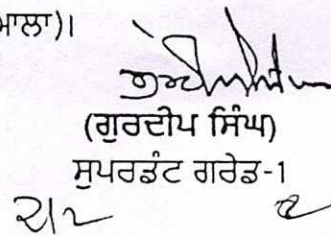 ਮਾਲਾ)।
(ਗੁਰਦੀਪ ਸਿੰਘ)
ਸੁਪਰਡੰਟ ਗਰੇਡ-1